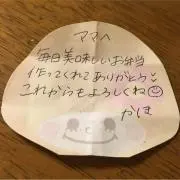 ママへ
毎日美味しいお弁当
作ってくれてありがとう
これからもよろしくね
かほ